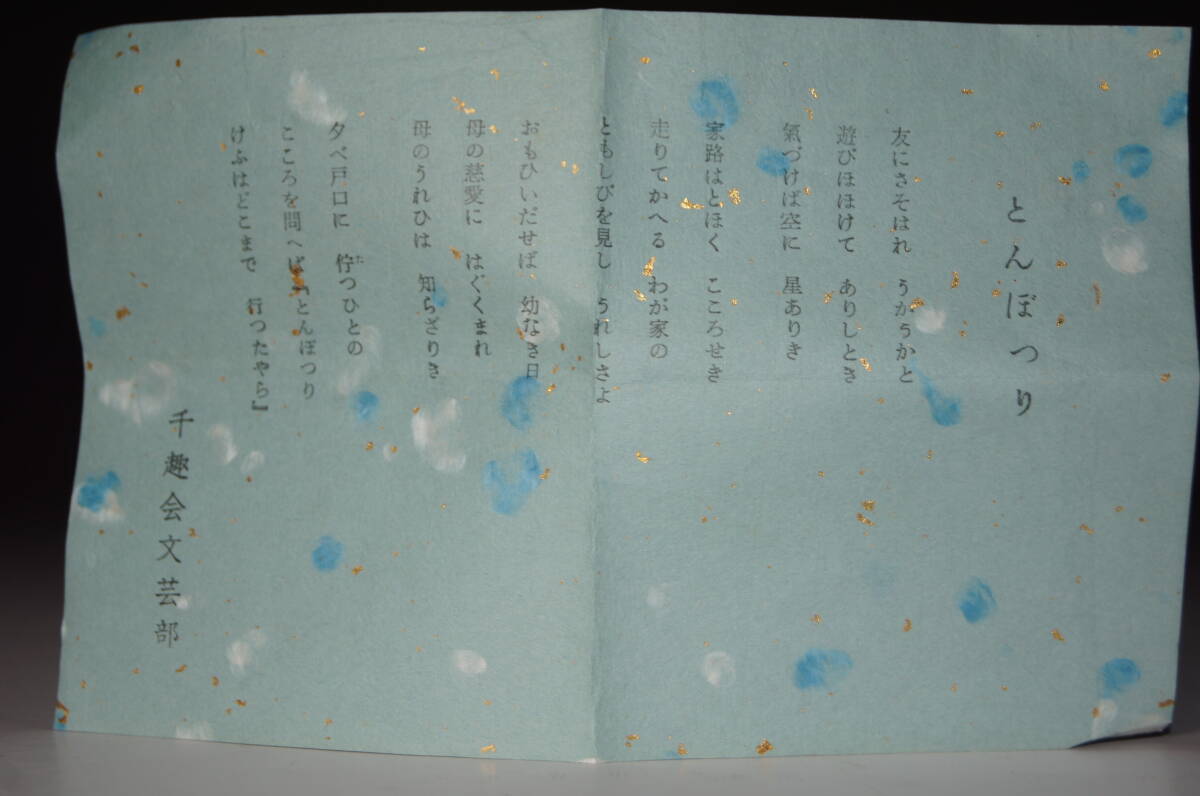 とんぼつり
友にさそはれ　うかうかと
遊びほほけて　ありしとき
氣づけば空に　星ありき
家路はとほく　こころせき
走りてかへる　わが家の
ともしびを見し　うれしさよ
おもひいだせば　幼なき日
母の慈愛に　はぐくまれ
母のうれひは　知らざりき
夕べ戸口に　佇つひとの
こころを問へば『とんぼつり
けふはどこまで　行つたやら』
千趣会文芸部